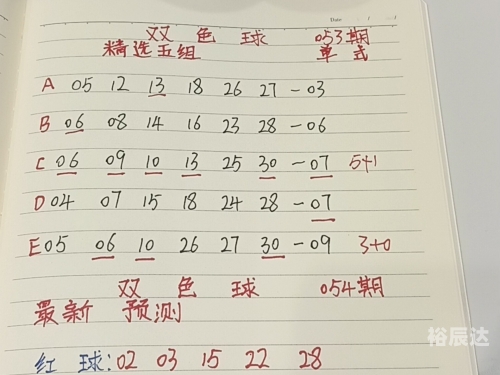 双 色 球 053期
精选五组 单 式
A 05 12 13 18 26 27-03
B 06 08 14 16 23 28-06
C 06 09 10 13 25 30-07 5+1
D 04 07 15 18 24 28-07
E 05 06 10 26 27 30-09 3+0
双 色 球 054期
最新 预测
红 球:02 03 15 22 28
Date / /
裕辰达